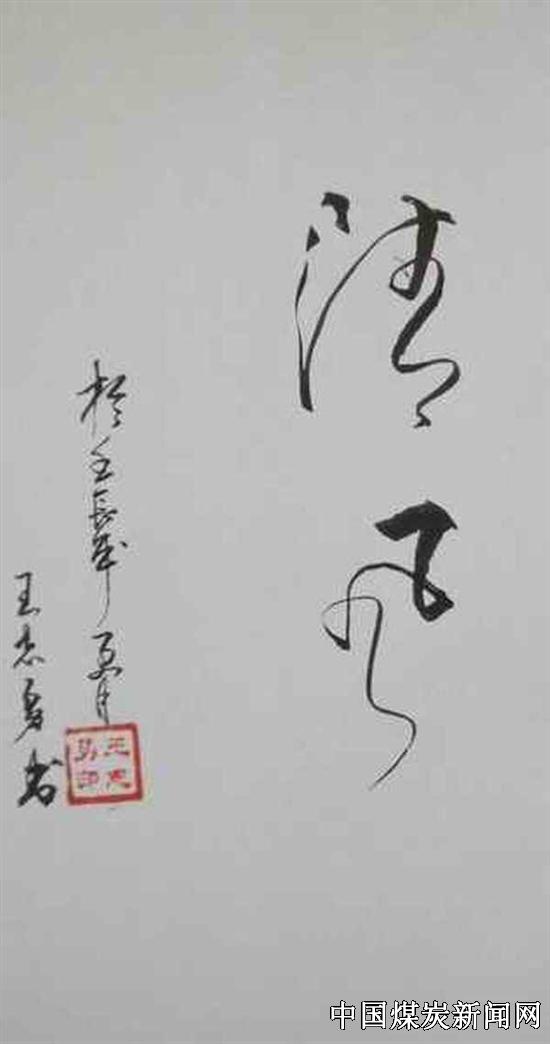 清风
於壬辰年夏月
王志勇书
王志勇印
中国煤炭新闻网